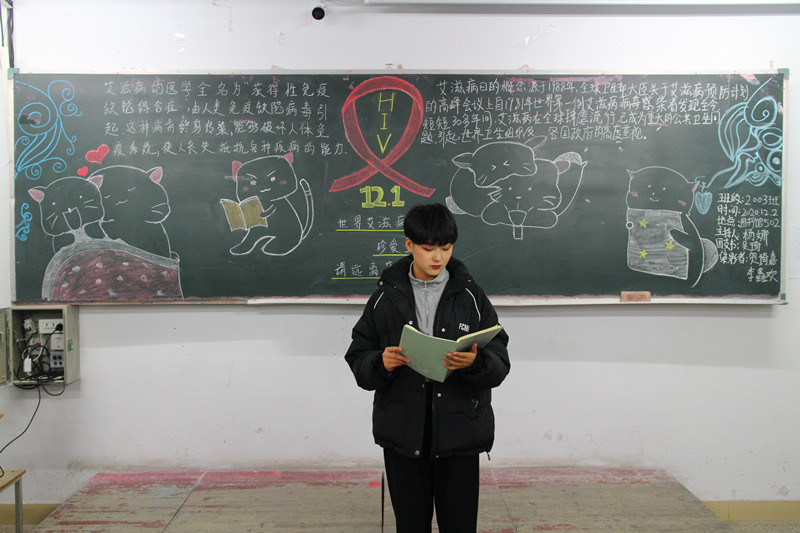 艾滋病的医学全名为“获得性免疫
缺陷综合症,由人类免疫缺陷病毒引
起,这种病毒终身传染,能够破坏人体免
疫系统,使人长失抵抗各种疾病的能力.
HIV
12.1
世界艾滋病
珍爱
请远离
艾滋病日的概念,源于1988年,全球卫生部大臣关于艾滋病预防计划
的高峰会议上自1981年世界第一例艾滋病病毒感染者发现至今,
短短30多年间,艾滋病在全球肆虐流行,已成为重大的公共卫生问
题,引起世界卫生组织及各国政府的高度重视.
班级:2003班
时间:2020.12.2
地点:图书馆502
主持人:杨姗
李鑫欢
FCMM